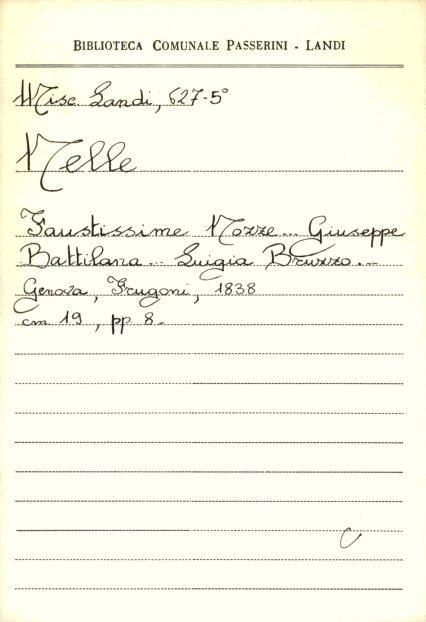 BIBLIOTECA COMUNALE PASSERINI - LANDI
Misc Landi, 627-5°
Nelle
Faustissime Nozze... Giuseppe
Battilana... Luigia Bruzzo...
Genova, Frugoni, 1838
cm 19, pp 8.
C